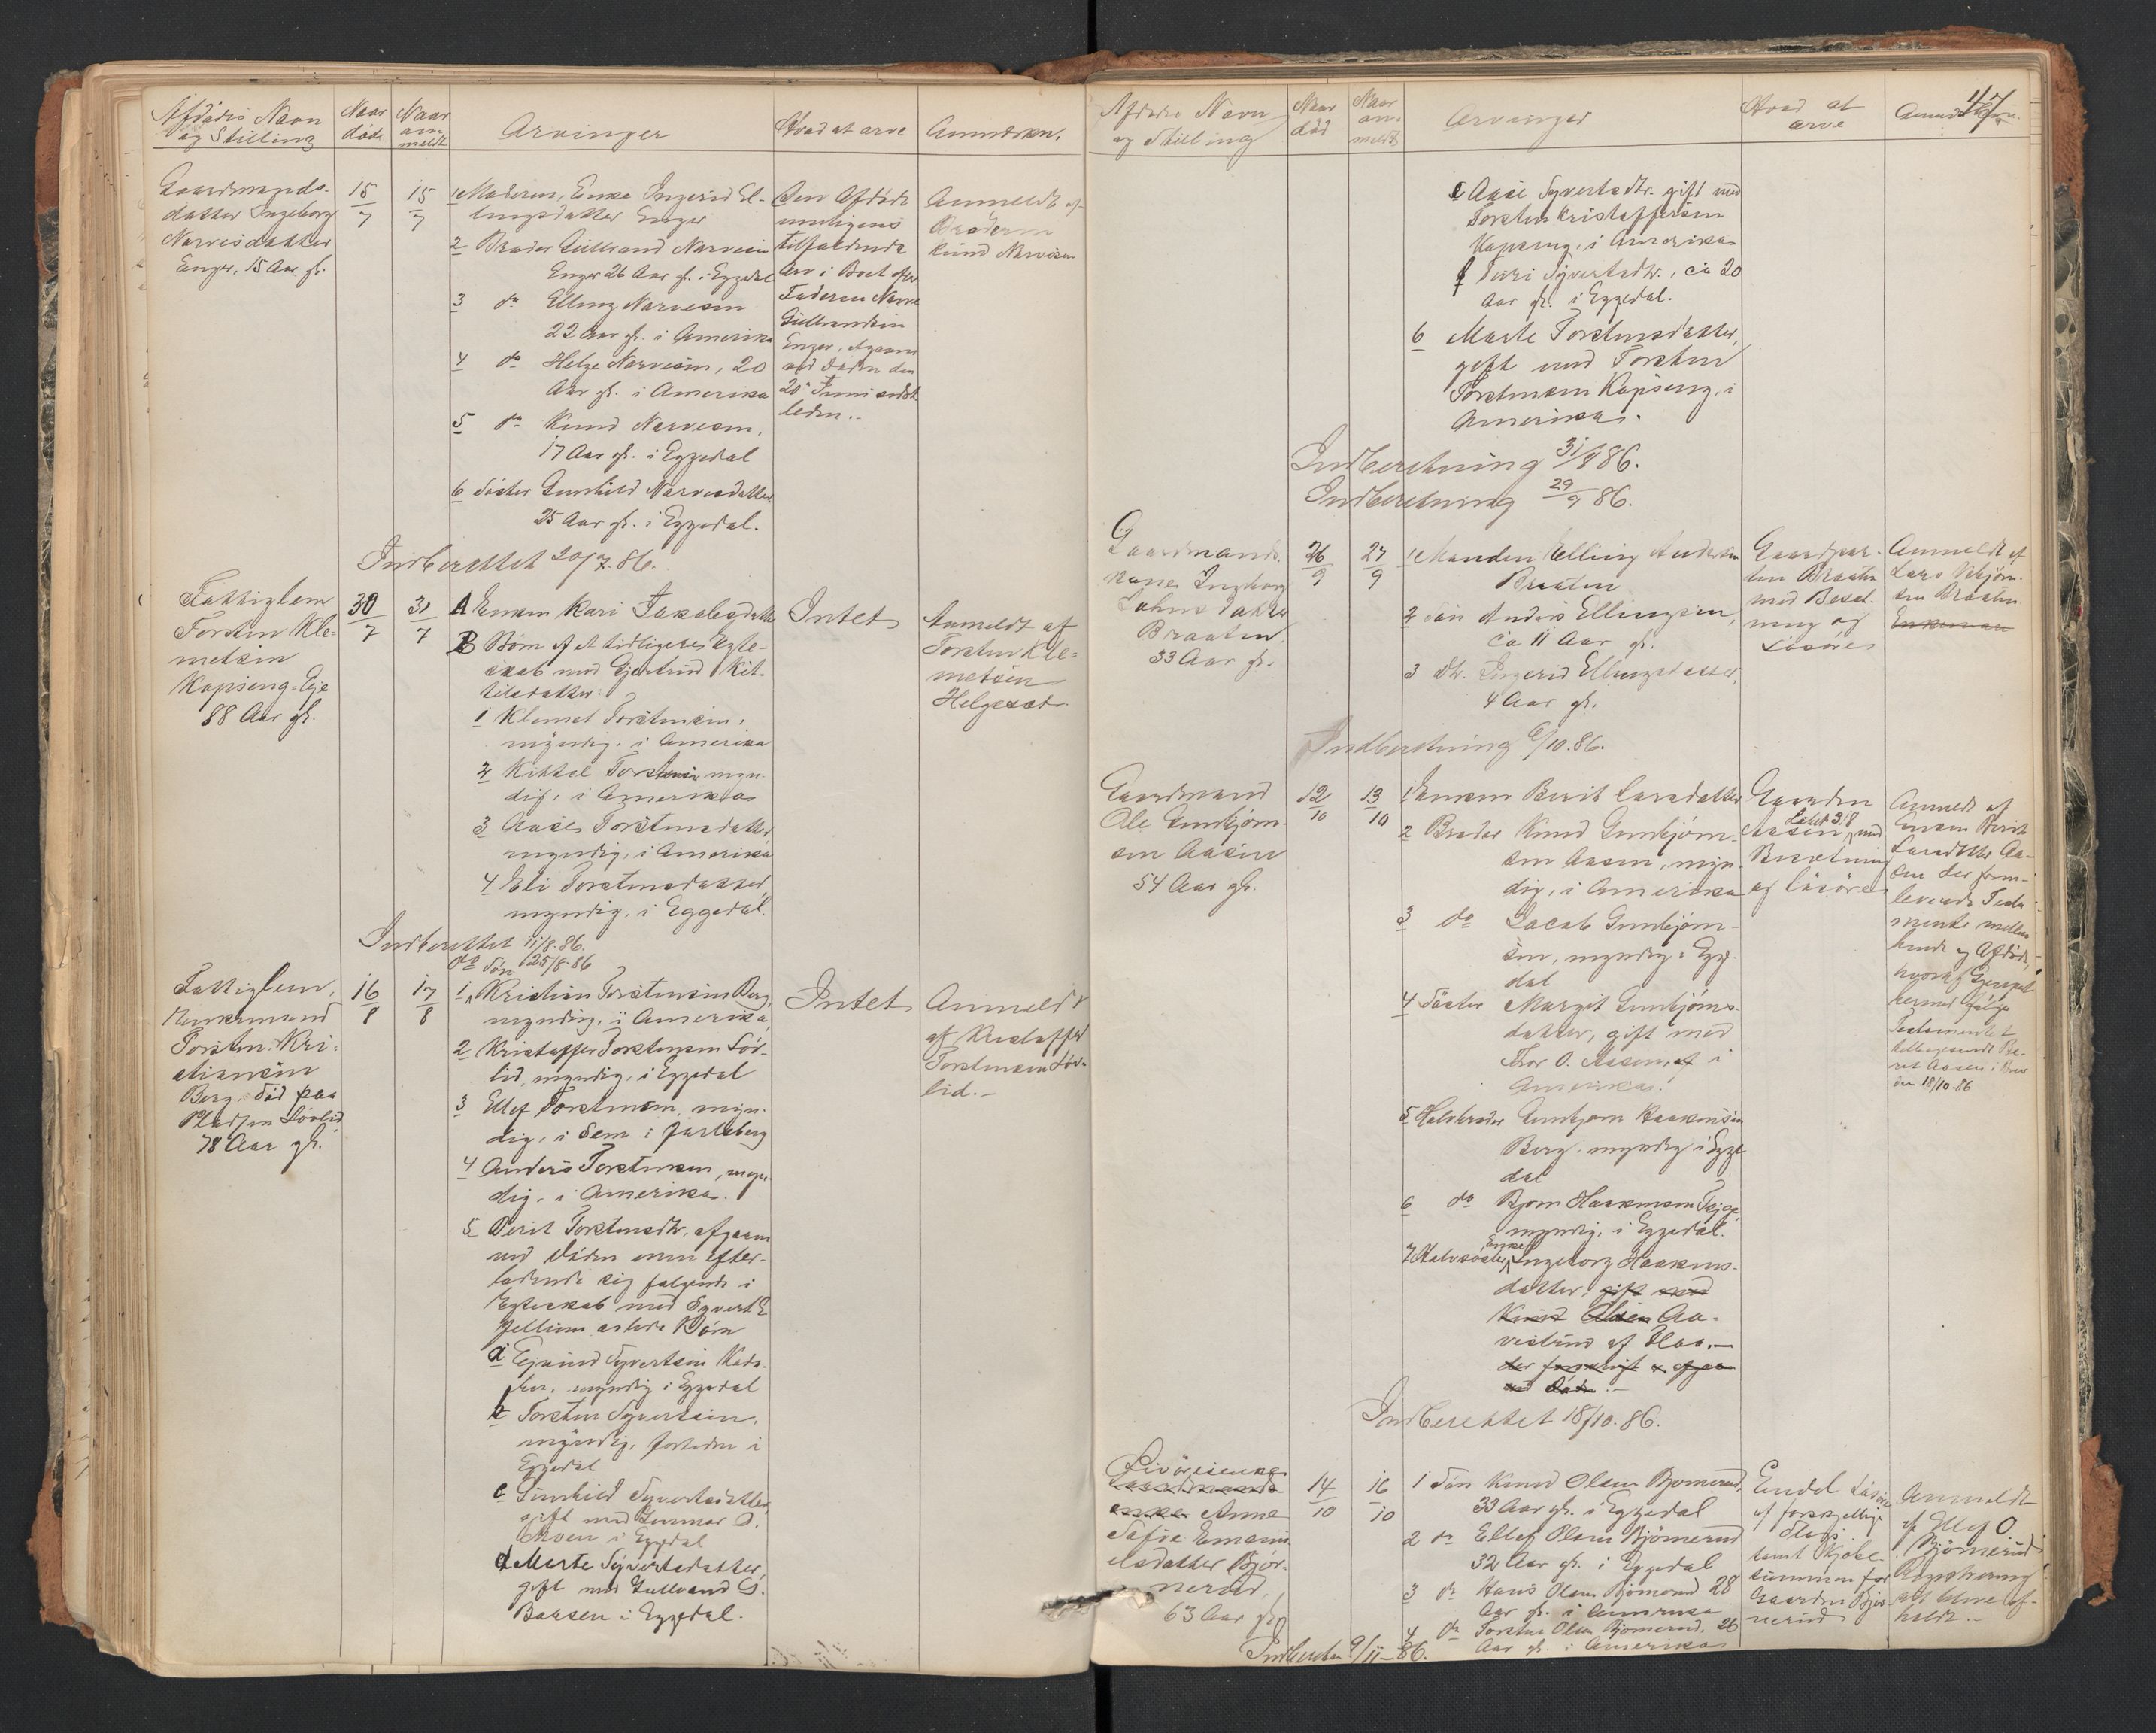 Afdødes Navn
og Stilling
Naar
døde
Naar
an-
meldt
Arvinger
Hvad at arve
Anmærkn.
Gaardmands-
datter Ingeborg
Narvesdatter
Enger, 15 Aar gl.
15/7
15/7
1 Moderen, Enke Ingerid El-
lingsdatter Enger
2 Broder Gulbrand Narvesen
Enger 26 Aar gl. i Eggedal
3 do Elling Narvesen
22 Aar gl. i Amerika
4 do Helge Narvesen, 20
Aar gl. i Amerika
5 do Knud Narvesen,
17 Aar gl. i Eggedal
6 Søster Gunhild Narvesdatter
25 Aar gl. i Eggedal.
Den Afdøde
muligens
tilfaldende
Arv i Boet efter
Faderen Narve
Gulbrandsen
Enger, afgaaet
ved Døden den
20de Juni sidst-
leden.-
Anmeldt af
Broderen
Knud Narvesen
Indberettet 20/7.86.
Fattiglem
Torsten Kle-
metsen
Kopseng-Eje
88 Aar gl.
30/7
31/7
A Enken Kari Jakobsdatter
B Børn af et tidligere Egte-
skab med Gjertrud Kit-
tilsdatter:
1 Klemet Torstensen,
myndig, i Amerika
2 Kittel Torstensen myn-
dig, i Amerika
3 Aase Torstensdatter
myndig, i Amerika
4 Eli Torstensdatter,
myndig, i Eggedal.
Intet
Anmeldt af
Torsten Kle-
metsen
Helgesæt
Indberettet 11/8.86.
do 25/8.86
Fattiglem,
Enkemand
Torsten Kri-
stiansen
Berg, død paa
Pladsen Løvlid
78 Aar gl.
16/8
17/8
1 Søn Kristian Torstensen Berg,
myndig, i Amerika
2 Kristoffer Torstensen Løv-
lid, myndig, i Eggedal
3 Ellef Torstensen, myn-
dig, i Sem i Jarlsberg
4 Anders Torstensen, myn-
dig, i Amerika.
5 Berit Torstensdtr. afgaaet
ved Døden men efter-
ladende sig følgende i
Egteskab med Syvert E
Jellum avlede Børn
a Ejvind Syvertsen
myndig i Eggedal
b Torsten Syvertsen,
myndig, i
Eggedal
c Gunhild Syvertsdatter
gift med Gunnar O.
Moen i Eggedal
d Marte Syvertsdatter,
gift med Gulbrand O.
Bakken i Eggedal.
Intet
Anmeldt
af Kristoffer
Torstensen Løv-
lid.-
Afdødes Navn
og Stilling
Naar
død
Naar
an-
meldt
Arvinger
Hvad at
arve
47
e Aase Syvertsdtr. gift med
Torsten Kristoffersen
Kopseng, i Amerika
f Turi Syvertsdtr., ca 20
Aar gl. i Eggedal.
6 Marte Torstensdatter,
gift med Torsten
Torstensen Kopseng, i
Amerika.
Indberetning 31/8 86.
Indberetning 29/9 86.
Gaardmands-
kone Ingeborg
Braaten
33 Aar gl.
26/9
27/9
1 Manden Elling Andersen
Braaten
2 Søn Anders Ellingsen,
ca 11 Aar gl.
3 Dtr. Ingerid Ellingsdatter,
4 Aar gl.
Gaardpar-
ten Braaten
med Besæt-
ning og
Løsøre
Anmeldt af
Lars
Braaten.
Enkeman
Indberetning 6/10.86.
Gaardmand
Ole Gunbjørn-
sen Aasen
54 Aar gl.
12/10
13/10
1 Enken Berit Larsdatter
2 Broder Knud Gunbjørn-
sen Aasen, myn-
dig, i Amerika
3 do Jacob Gunbjørn-
sen, myndig i Egge-
dal
4 Søster Margit Gunbjørns-
datter, gift med
Thor O. Aasen, i
Amerika.
5 Halvbroder Gunbjørn Haakensen
Berg, myndig i Egge-
dal
6 do Bjørn Haakensen Teige,
myndig, i Eggedal.
7 Halvsøster, Enke Ingeborg Haakens-
datter, gift med
Knud Olsen Aa-
vestrud af Flaa.-
ved Døden.-
Gaarden
Aasen med
Besætning
og Løsøre
Anmeldt af
Enken Berit
Larsdatter Aa-
sen der frem-
leverede Testa-
mente mellem
hende og Afdøde,
hvoraf Gjenpart
hermed følger
Testamentet
tilbagesendt Be-
rit Aasen i Brev
den 18/10.86
Indberettet 18/10.86.
Livøreisenke
Gaardmands
enke Anne
Sofie Emanu-
elsdatter Bjør-
nerud,
63 Aar gl.
14/10
16/10
1 Søn Knud Olsen Bjørnerud,
33 Aar gl. i Eggedal
2 do Ellef Olsen Bjørnerud
32 Aar gl. i Eggedal
3 do Hans Olsen Bjørnerud 28
Aar gl. i Amerika
4 do Torsten Olsen Bjørnerud, 26
Aar gl. i Amerika
Endel Løsøre
af forskjellige
Slags
samt Kjøbe-
summen for
Gaarden Bjør-
nerud
Anmeldt
af Ellef O.
Bjørnerud
Registrering
blive af-
holdt.-
Indberettet 9/11-86.